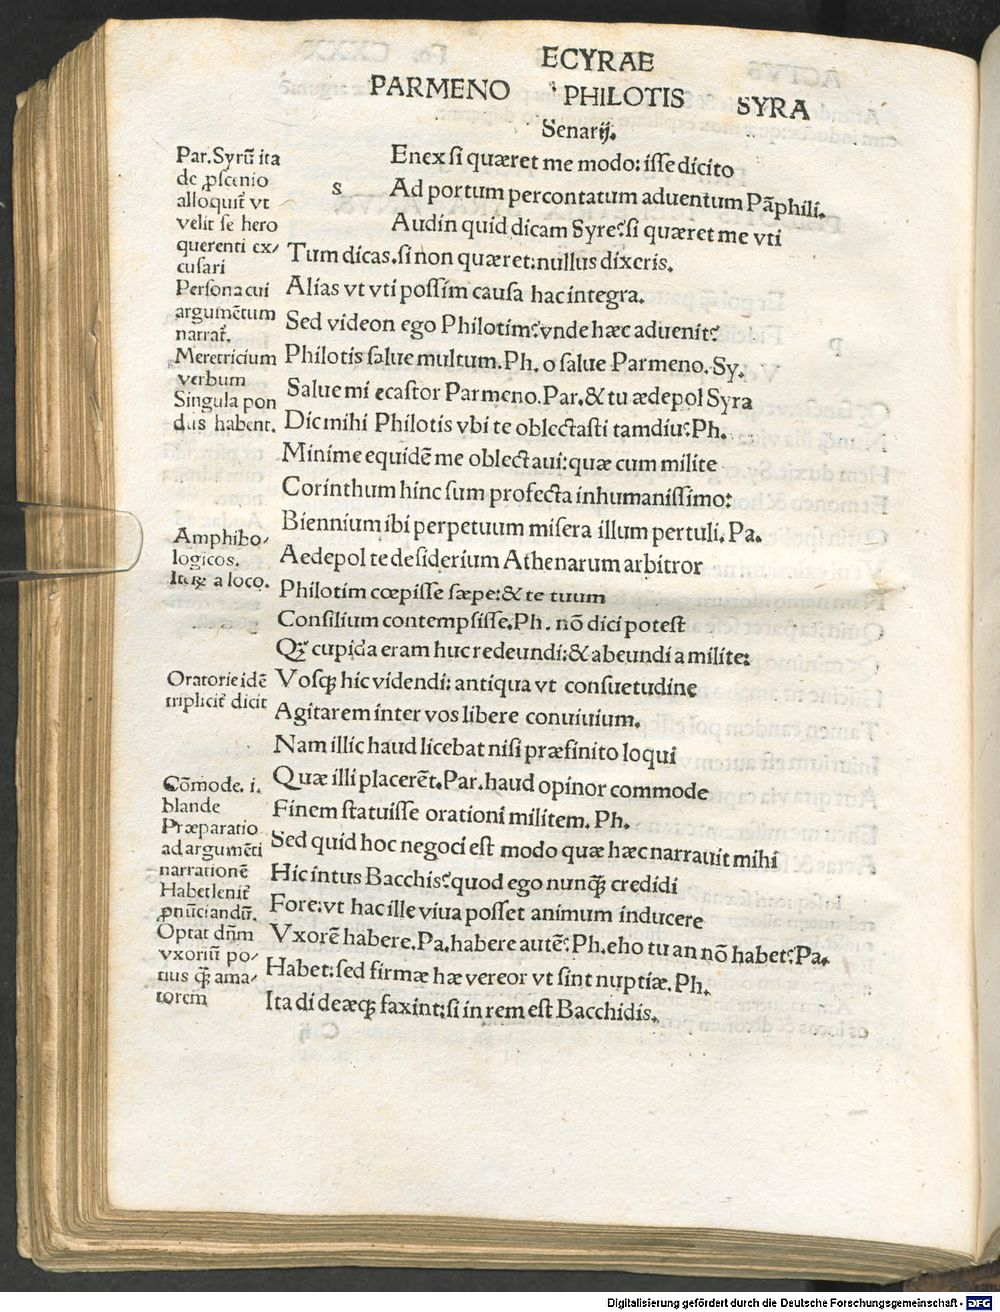 ECYRAE
PARMENO PHILOTIS SYRA
Senarij.
s Enex si quæret me modo: isse dicito
Ad portum percontatum aduentum Pãphili.
Audin quid dicam Syre? si quæret me vti
Tum dicas. si non quæret: nullus dixeris.
Alias vt vti possim causa hac integra.
Sed videon ego Philotim? vnde hæc aduenit?
Philotis salue multum. Ph. o salue Parmeno. Sy.
Salue mi ecastor Parmeno. Par. & tu ædepol Syra
Dic mihi Philotis vbi te oblectasti tamdiu? Ph.
Minime equidẽ me oblectaui: quæ cum milite
Corinthum hinc sum profecta inhumanissimo:
Biennium ibi perpetuum misera illum pertuli. Pa.
Aedepol te desiderium Athenarum arbitror
Philotim cœpisse sæpe: & te tuum
Consilium contempsisse. Ph. nõ dici potest
Qꝫ cupida eram huc redeundi: & abeundi a milite:
Vosqꝫ hic videndi: antiqua vt consuetudine
Agitarem inter vos libere conuiuium.
Nam illic haud licebat nisi præfinito loqui
Quæ illi placerẽt. Par. haud opinor commode
Finem statuisse orationi militem. Ph.
Sed quid hoc negoci est modo quæ hæc narrauit mihi
Hic intus Bacchis? quod ego nunqꝫ̃ credidi
Fore: vt hac ille viua posset animum inducere
Vxorẽ habere. Pa. habere autẽ? Ph. eho tu an nõ habet? Pa.
Habet: sed firmæ hæ vereor vt sint nuptiæ. Ph.
Ita di deæqꝫ faxint: si in rem est Bacchidis.
Par. Syrũ ita
de ꝓscenio
alloquit̃ vt
velit se hero
querenti ex/
cusari
Persona cui
argumẽtum
narrat̃.
Meretricium
verbum
Singula pon
dus habent.
Amphibo/
logicos.
a loco.
Oratorie idẽ
triplicit̃ dicit
Cõmode. i.
blande
Præparatio
ad argumẽti
narrationẽ
Habet lenit̃
ꝓnũciandũ.
Optat dñm
vxoriũ po/
tius qꝫ̃ ama/
torem
Digitalisierung gefördert durch die Deutsche Forschungsgemeinschaft - DFG